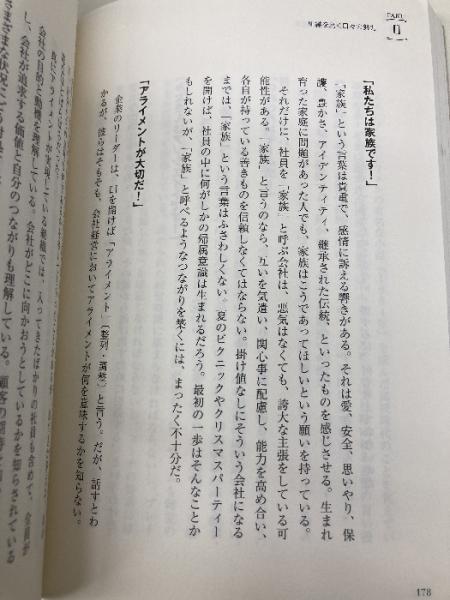 PART
II
「私たちは家族です！」
「家族」という言葉は貴重で、感情に訴える響きがある。それは愛、安全、思いやり、保
護、豊かさ、アイデンティティ、継承された伝統、といったものを感じさせる。生まれ
育った家庭に問題があった人でも、家族はこうであってほしいという願いを持っている。
それだけに、社員を「家族」と呼ぶ会社は、悪気はなくても、誇大な主張をしている可
能性がある。「家族」と言うのなら、互いを気遣い、関心事に配慮し、能力を高め合い、
各自が持っている善きものを信頼しなくてはならない。掛け値なしにそういう会社になる
までは、「家族」という言葉はふさわしくない。夏のピクニックやクリスマスパーティー
を開けば、社員の中に何がしかの帰属意識は生まれるだろう。最初の一歩はそんなことか
もしれないが、「家族」と呼べるようなつながりを築くには、まったく不十分だ。
「アライメントが大切だ！」
企業のリーダーは、口を開けば「アライメント」（整列・調整）と言う。だが、話すとわ
かるが、彼らはそもそも、会社経営においてアライメントが何を意味するかを知らない。
入ってきたばかりの社員も含めて、全員が
会社の目的と動機を理解している。会社がどこに向かおうとしているかを知らされている
し、会社が追求する価値と自分のつながりも理解している。
178